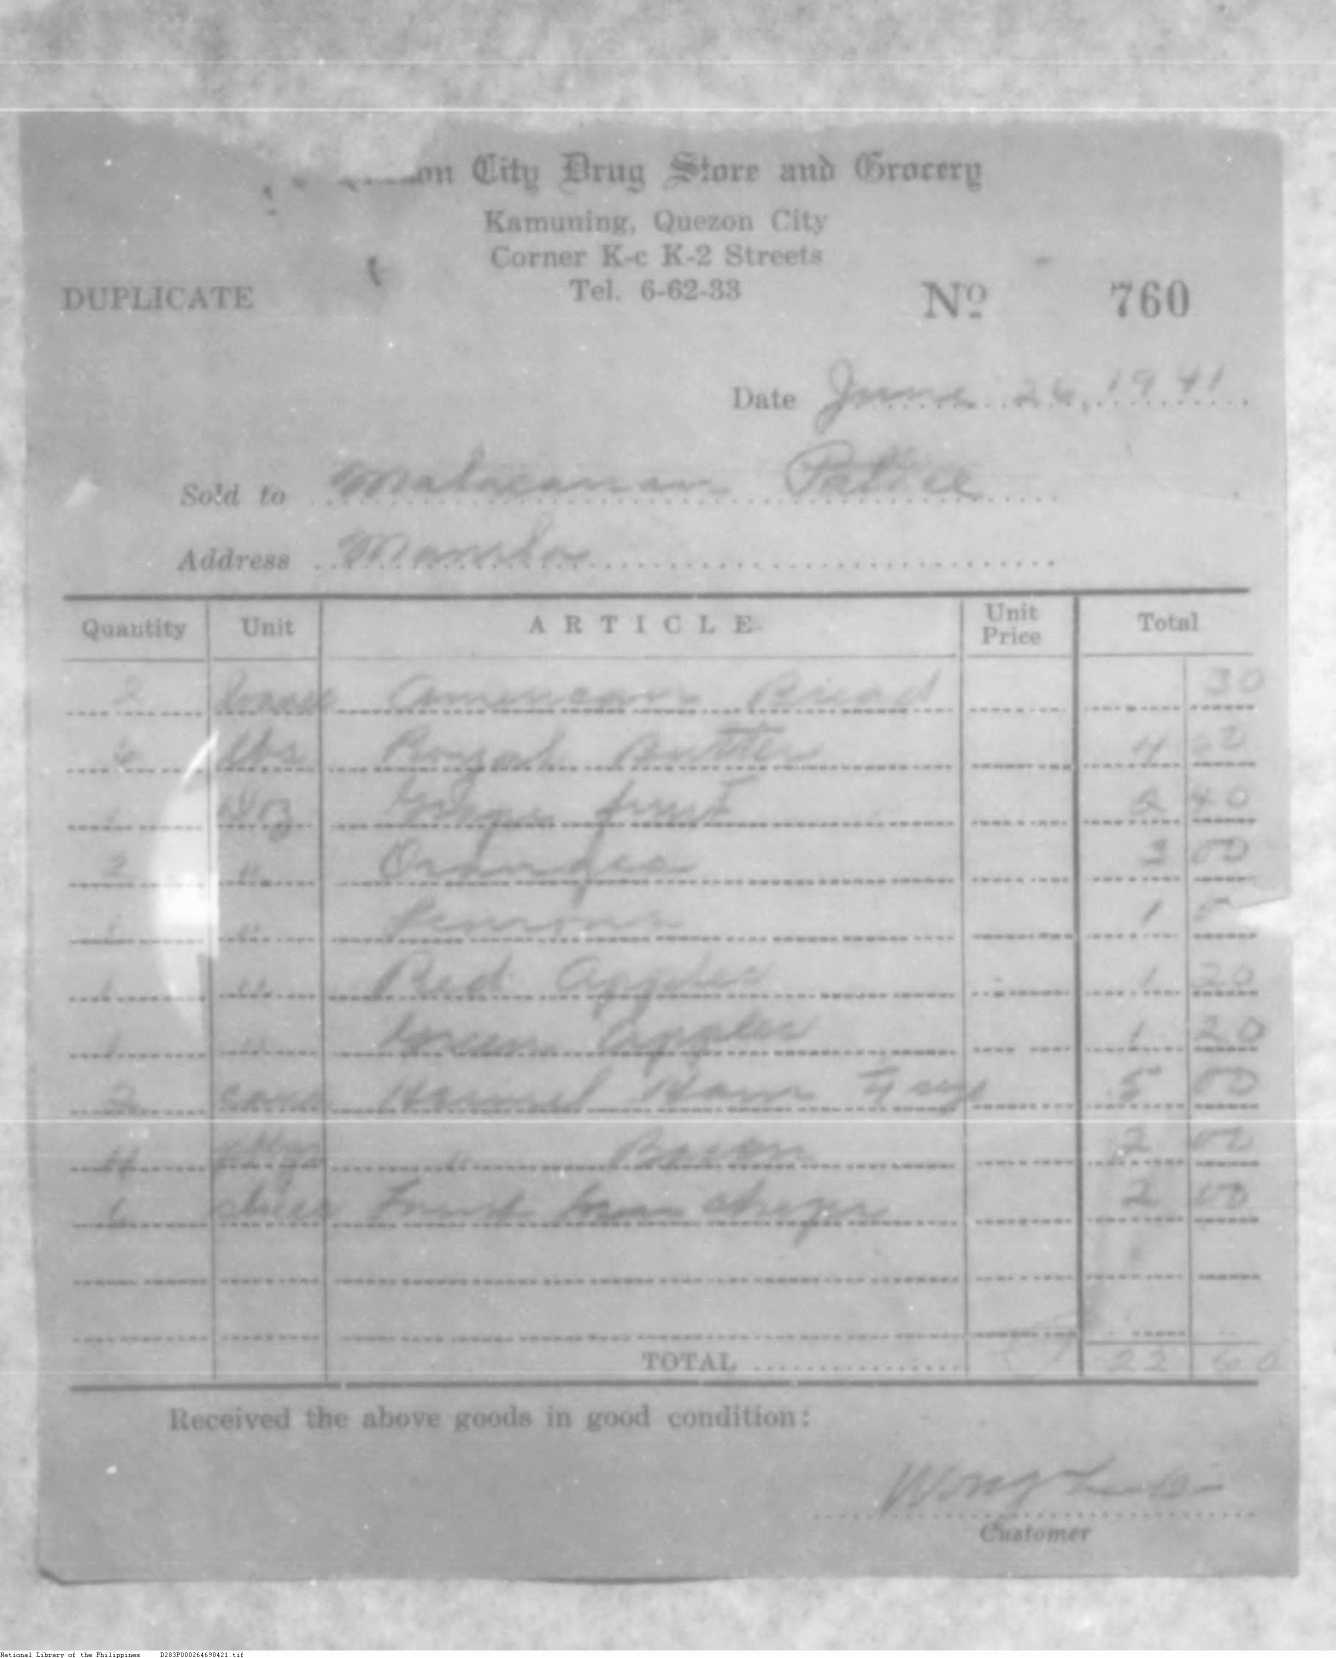 on City Drug Store and Grocery
Kamuning, Quezon City
Corner K-c K-2 Streets
Tel. 6-62-33
DUPLICATE
No 760
Date June 26, 1941
Sold to Malacanan Palace
Address Manila
Quantity Unit ARTICLE Unit Price Total
2 American Bread 30
6 lbs Royal Butter 4
1 doz Grape fruit 2 40
2 " Oranges 3 00
1 " 1
1 " Red Apples 1 20
1 " Green Apples 1 20
2 cans Hormel Ham 5 00
4 pkgs " Bacon 2 00
6 2 00
TOTAL 22 60
Received the above goods in good condition:
Wong
Customer
National Library of the Philippines D283P000264690421.tif